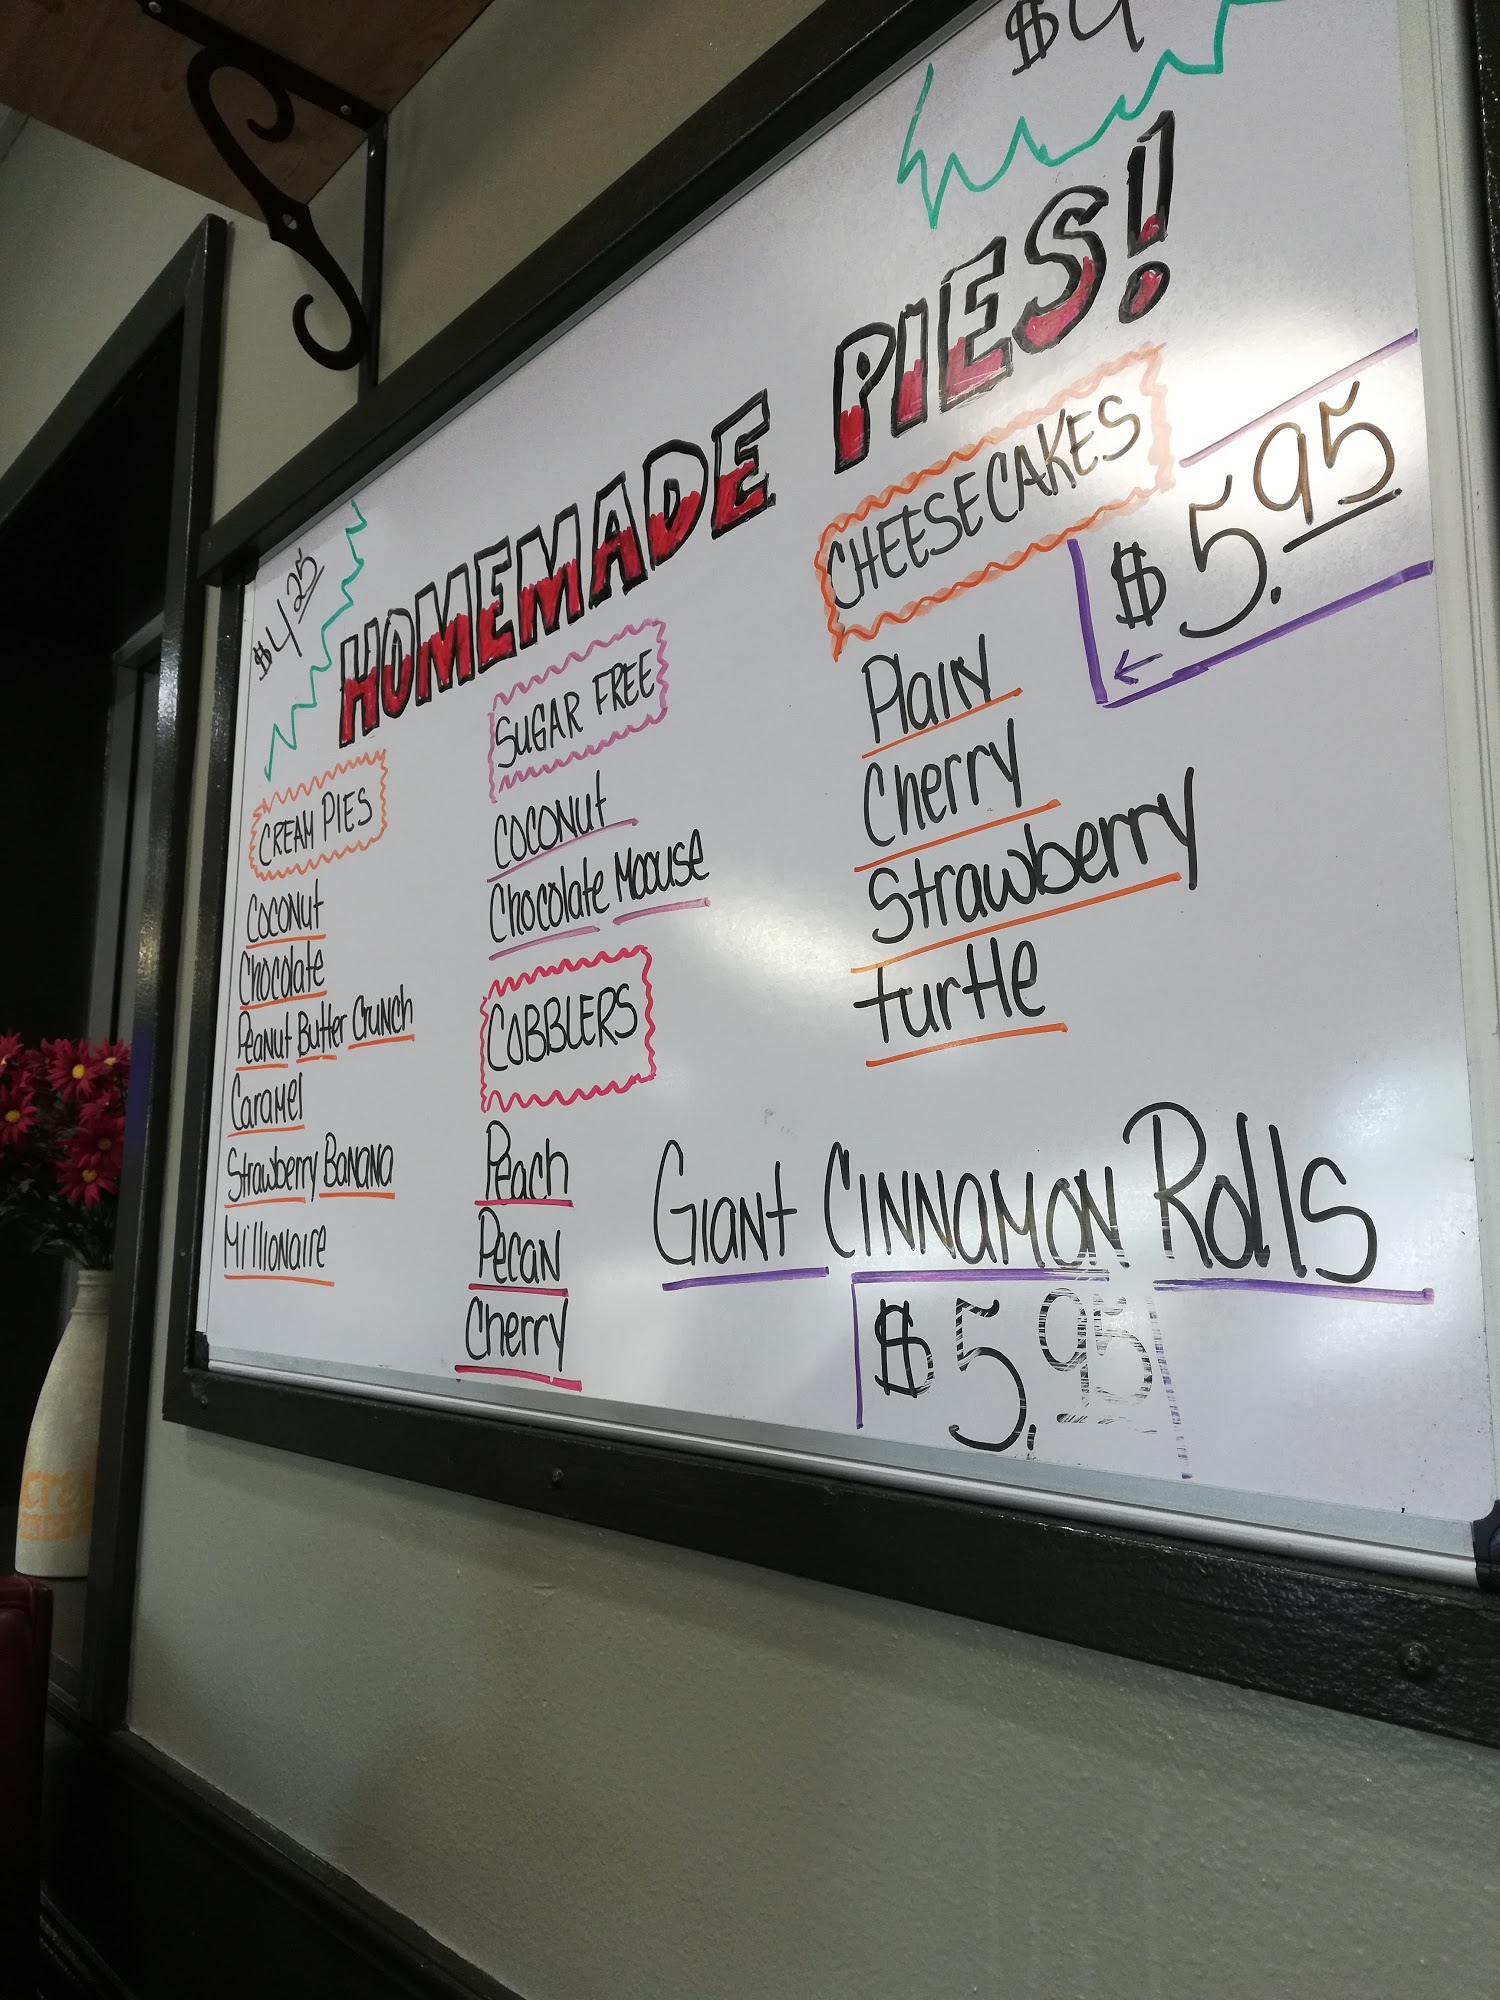 $4
$4.25
HOMEMADE PIES!
CREAM PIES
COCONUT
Chocolate
Peanut Butter Crunch
Caramel
Strawberry Banana
Millionaire
SUGAR FREE
COCONUT
Chocolate Moouse
COBBLERS
Peach
Pecan
Cherry
CHEESECAKES
$5.95
Plain
Cherry
Strawberry
turtle
GIANT CINNAMON Rolls
$5.95